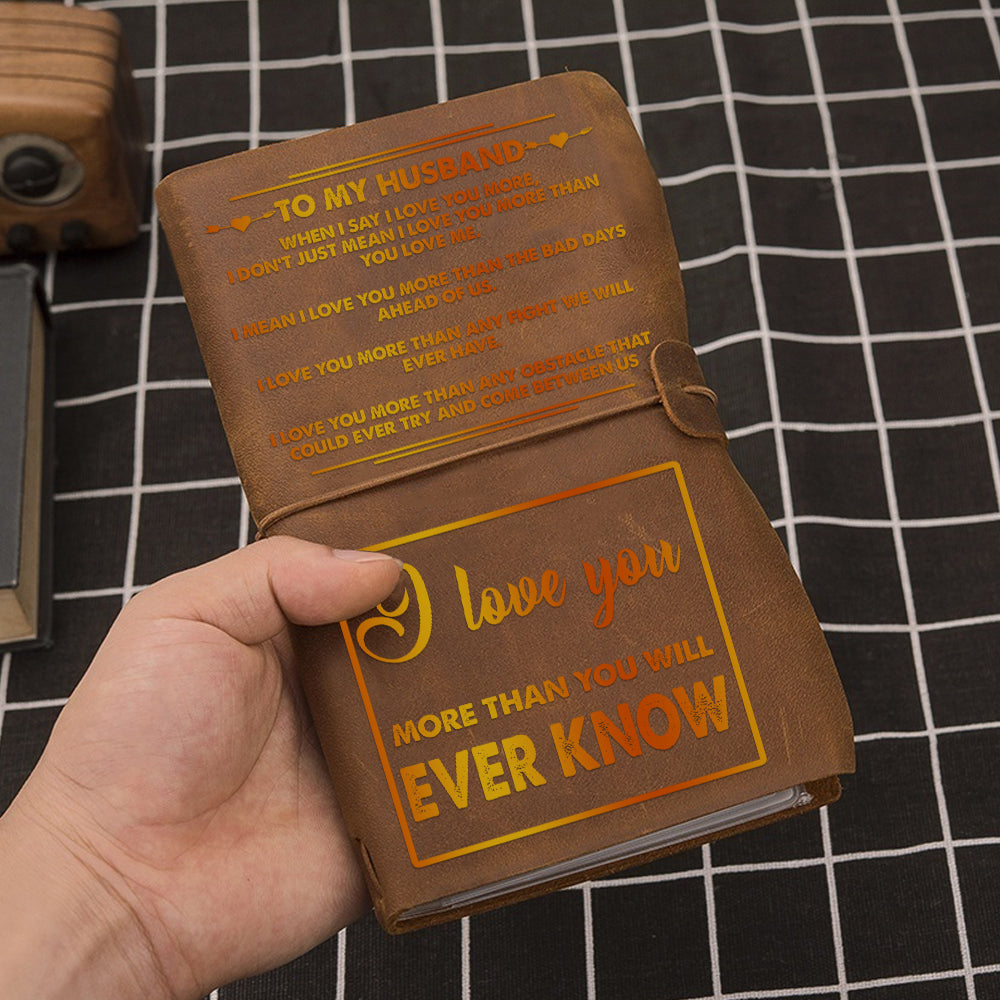 TO MY HUSBAND
WHEN I SAY I LOVE YOU MORE,
I DON'T JUST MEAN I LOVE YOU MORE THAN
YOU LOVE ME.
I MEAN I LOVE YOU MORE THAN THE BAD DAYS
AHEAD OF US.
I LOVE YOU MORE THAN ANY FIGHT WE WILL
EVER HAVE.
I LOVE YOU MORE THAN ANY OBSTACLE THAT
COULD EVER TRY AND COME BETWEEN US
I love you
MORE THAN YOU WILL
EVER KNOW